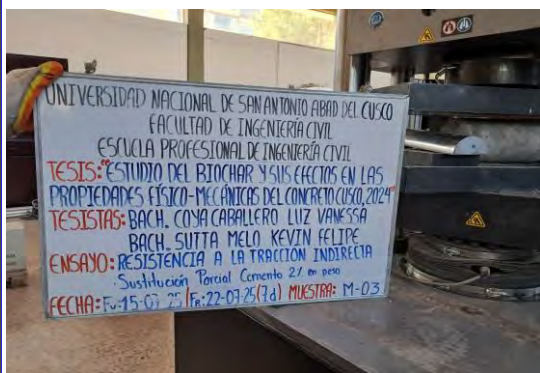 UNIVERSIDAD NACIONAL DE SAN ANTONIO ABAD DEL CUSCO
FACULTAD DE INGENIERÍA CIVIL
ESCUELA PROFESIONAL DE INGENIERÍA CIVIL
TESIS: "ESTUDIO DEL BIOCHAR Y SUS EFECTOS EN LAS
PROPIEDADES FÍSICO-MECÁNICAS DEL CONCRETO CUSCO, 2024"
TESISTAS: BACH. COYA CABALLERO LUZ VANESSA
BACH. SUTTA MELO KEVIN FELIPE
ENSAYO: RESISTENCIA A LA TRACCIÓN INDIRECTA
Sustitución Parcial Cemento 2% en peso
FECHA: FV:15-07-25 / FR:22-07-25 (7d) MUESTRA: M-03